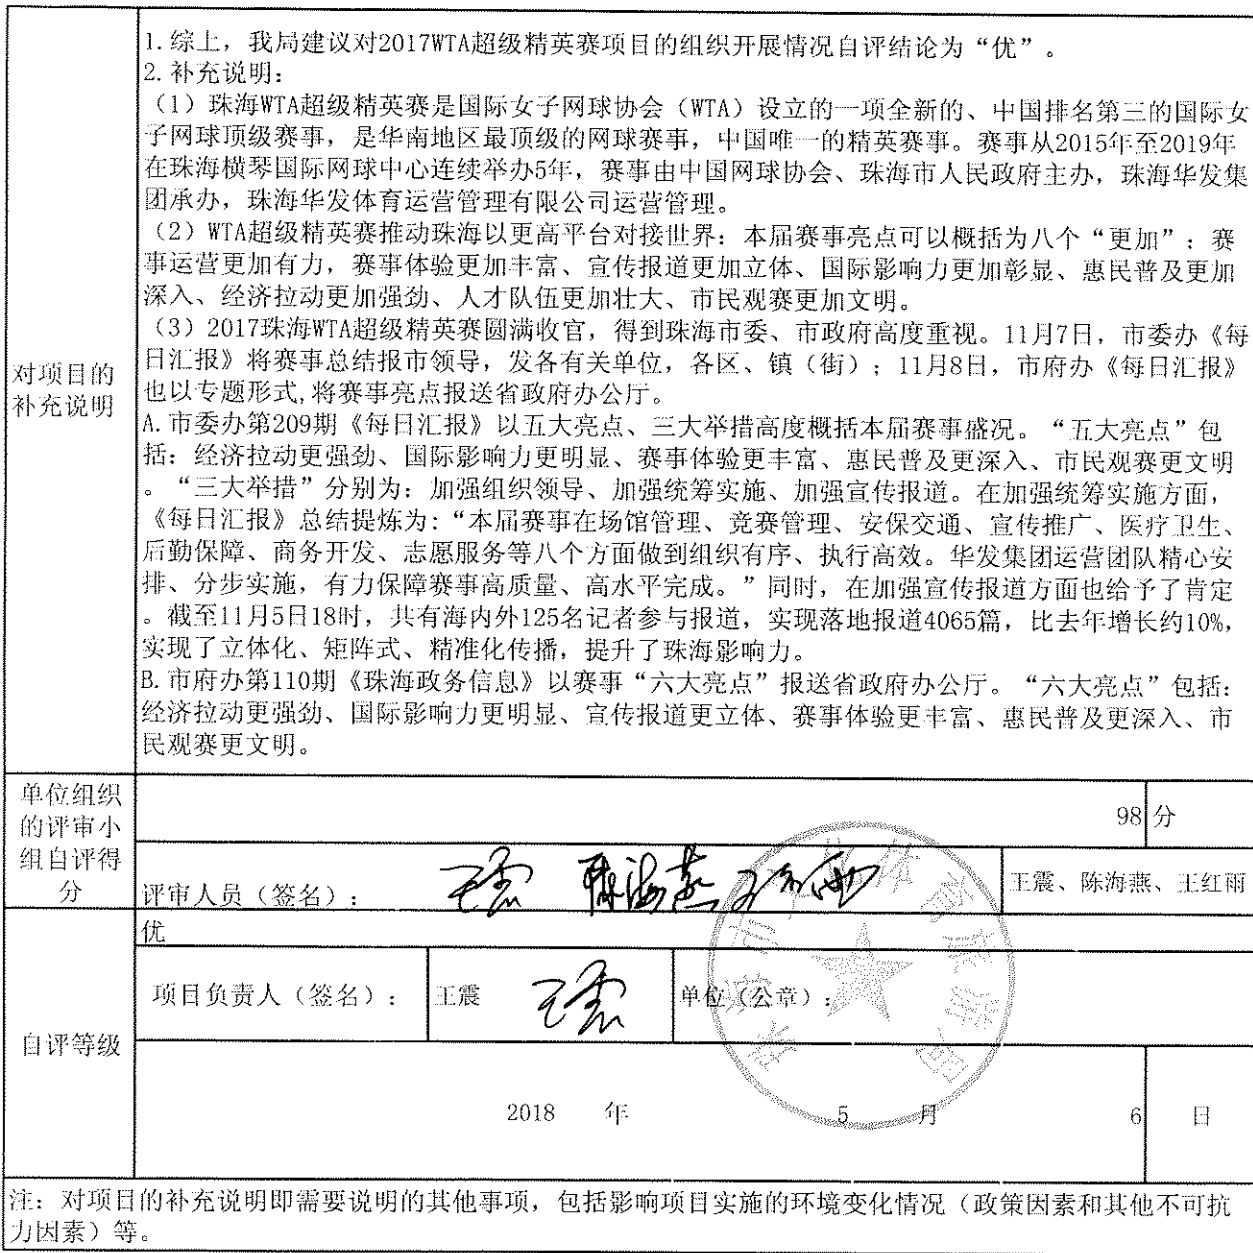 1.综上，我局建议对2017WTA超级精英赛项目的组织开展情况自评结论为“优”。
2.补充说明：
（1）珠海WTA超级精英赛是国际女子网球协会（WTA）设立的一项全新的、中国排名第三的国际女
子网球顶级赛事，是华南地区最顶级的网球赛事，中国唯一的精英赛事。赛事从2015年至2019年
在珠海横琴国际网球中心连续举办5年，赛事由中国网球协会、珠海市人民政府主办，珠海华发集
团承办，珠海华发体育运营管理有限公司运营管理。
（2）WTA超级精英赛推动珠海以更高平台对接世界：本届赛事亮点可以概括为八个“更加”：赛
事运营更加有力，赛事体验更加丰富、宣传报道更加立体、国际影响力更加彰显、惠民普及更加
深入、经济拉动更加强劲、人才队伍更加壮大、市民观赛更加文明。
（3）2017珠海WTA超级精英赛圆满收官，得到珠海市委、市政府高度重视。11月7日，市委办《每
日汇报》将赛事总结报市领导，发各有关单位，各区、镇（街）；11月8日，市府办《每日汇报》
也以专题形式,将赛事亮点报送省政府办公厅。
对项目的
补充说明
A.市委办第209期《每日汇报》以五大亮点、三大举措高度概括本届赛事盛况。“五大亮点”包
括：经济拉动更强劲、国际影响力更明显、赛事体验更丰富、惠民普及更深入、市民观赛更文明
。“三大举措”分别为：加强组织领导、加强统筹实施、加强宣传报道。在加强统筹实施方面，
《每日汇报》总结提炼为：“本届赛事在场馆管理、竞赛管理、安保交通、宣传推广、医疗卫生、
后勤保障、商务开发、志愿服务等八个方面做到组织有序、执行高效。华发集团运营团队精心安
排、分步实施，有力保障赛事高质量、高水平完成。”同时，在加强宣传报道方面也给予了肯定
。截至11月5日18时，共有海内外125名记者参与报道，实现落地报道4065篇，比去年增长约10%，
实现了立体化、矩阵式、精准化传播，提升了珠海影响力。
B.市府办第110期《珠海政务信息》以赛事“六大亮点”报送省政府办公厅。“六大亮点”包括：
经济拉动更强劲、国际影响力更明显、宣传报道更立体、赛事体验更丰富、惠民普及更深入、市
民观赛更文明。
单位组织
的评审小
组自评得
分
98 分
评审人员（签名）： 王震 陈海燕 王红雨 王震、陈海燕、王红雨
自评等级
优
项目负责人（签名）： 王震 王震 单位（公章）：
珠海市文化体育旅游局
2018 年 5 月 6 日
注：对项目的补充说明即需要说明的其他事项，包括影响项目实施的环境变化情况（政策因素和其他不可抗
力因素）等。